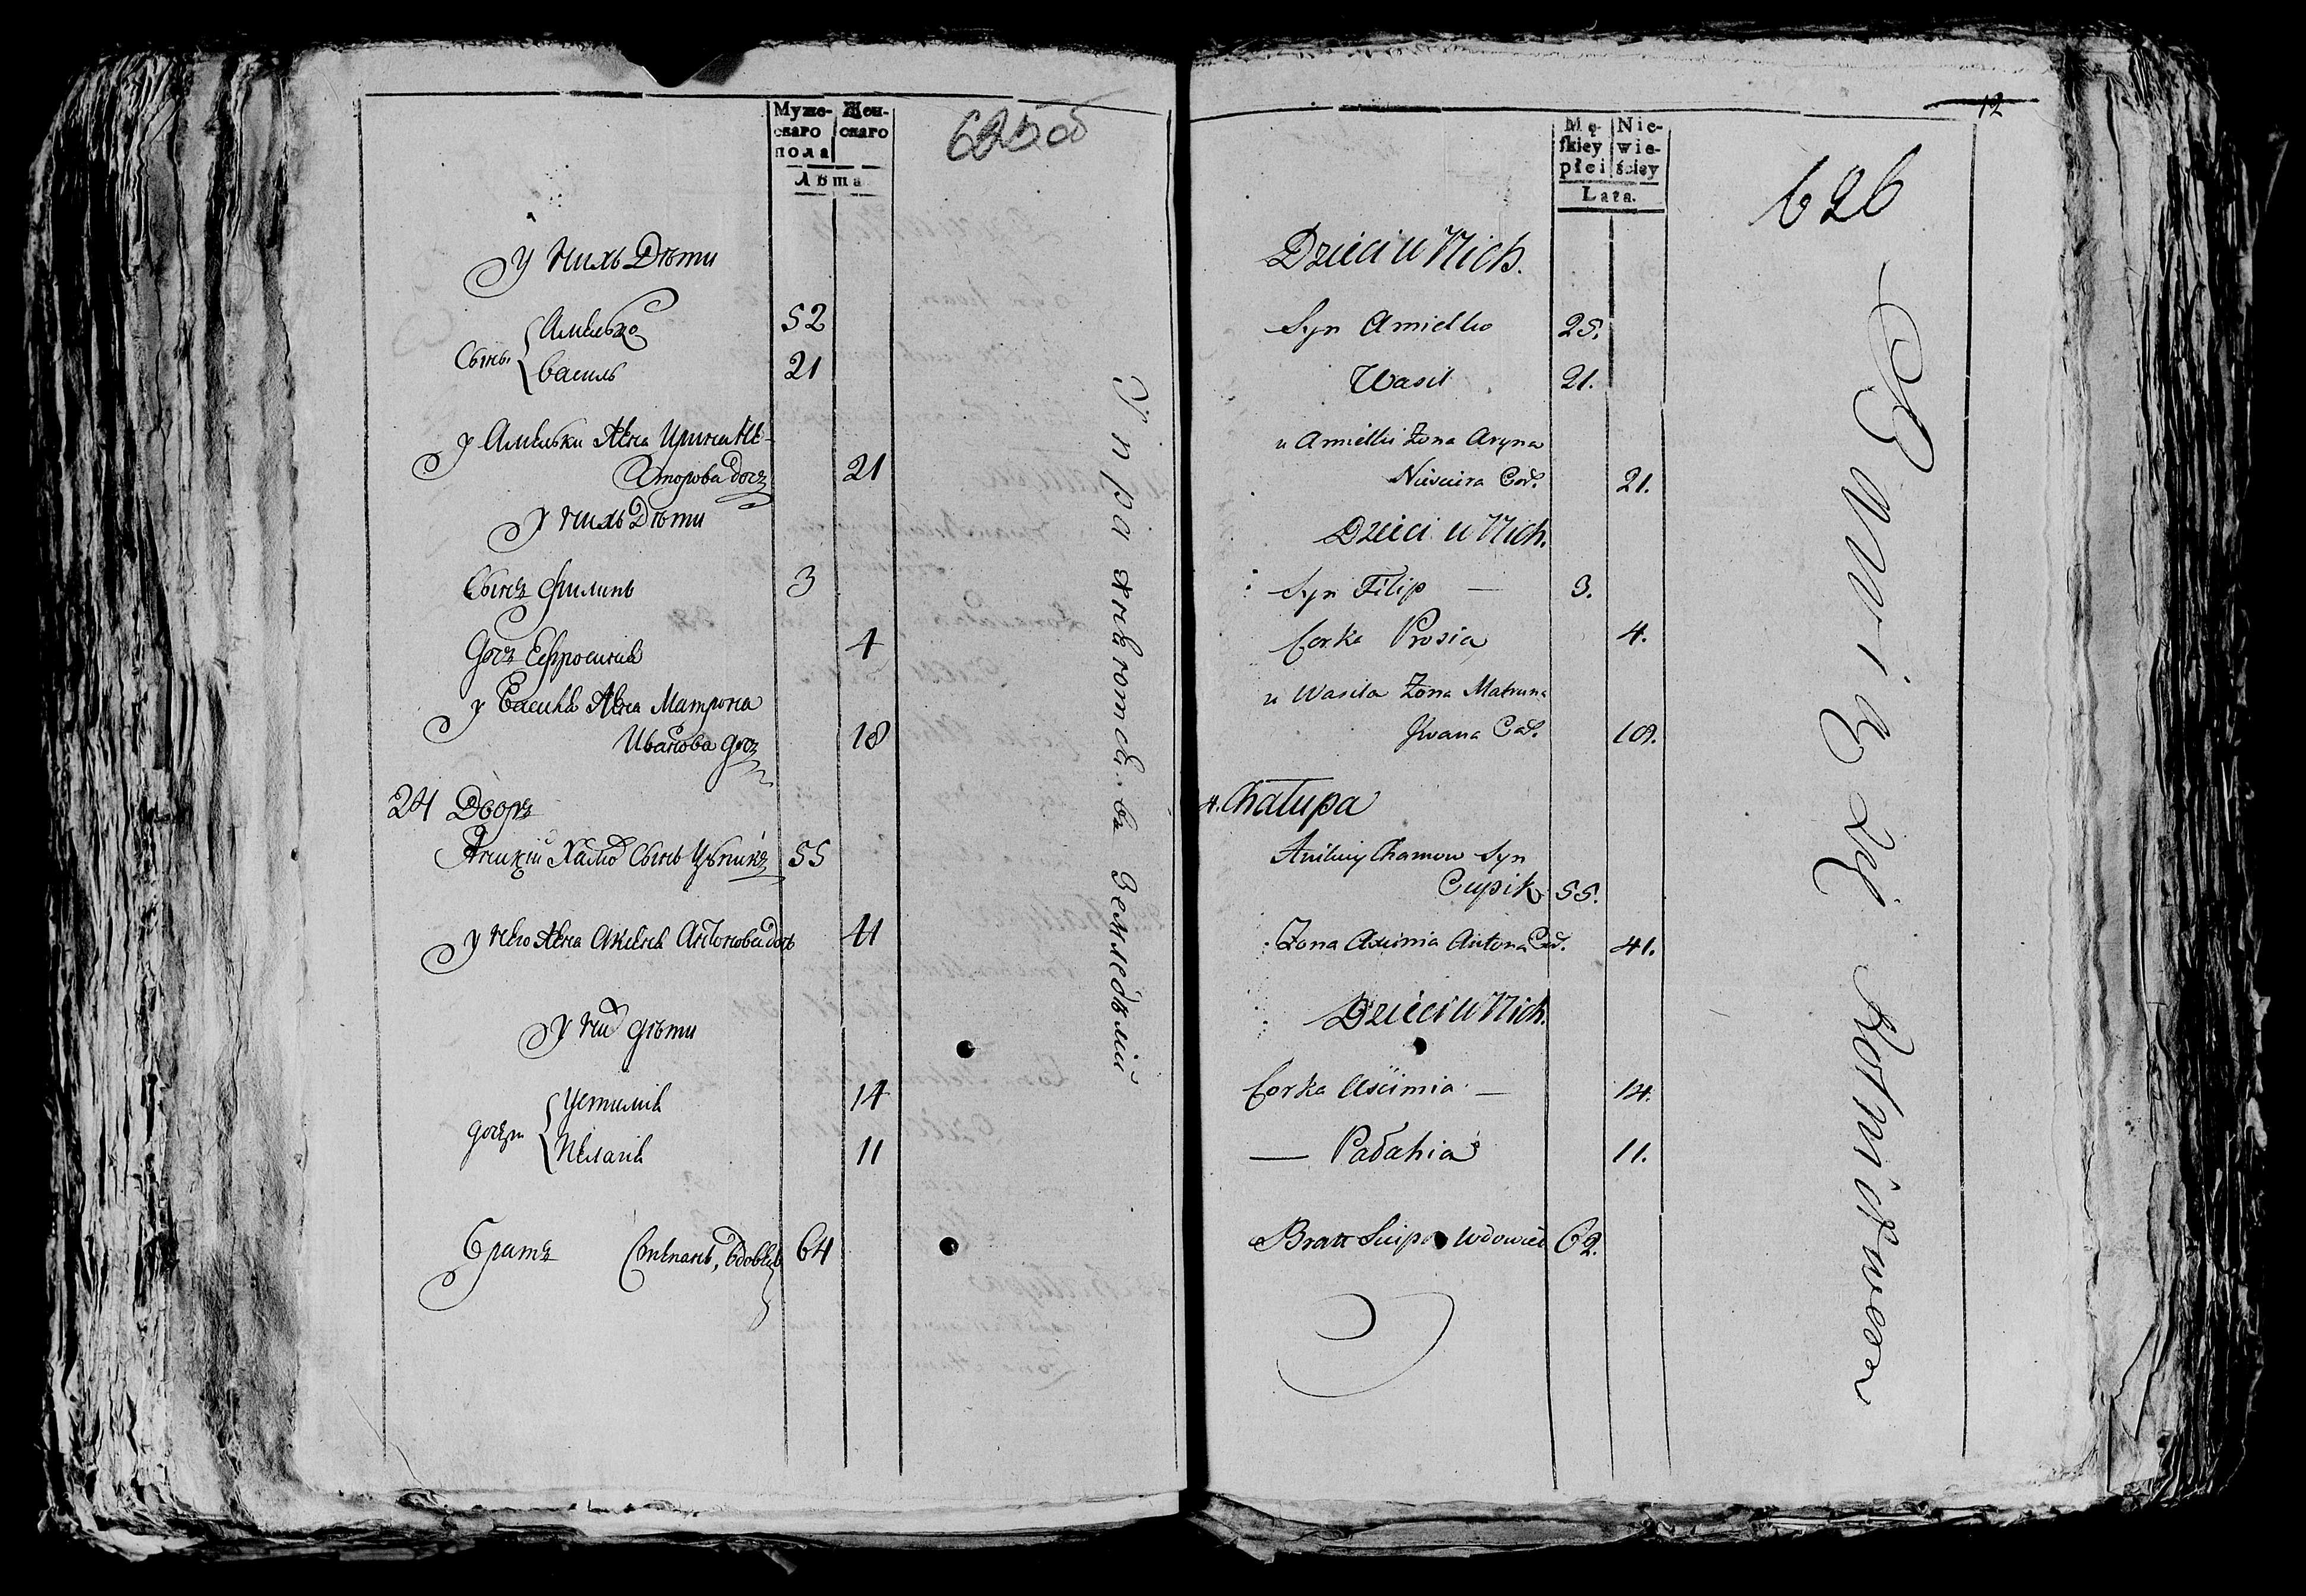 Муже-
скаго
пола
Жен-
скаго
Лѣта
625 об
У нихъ Дѣти
Сыны
Амелько 52
Василь 21
у Амельки Жена Ирина Не-
сторова дочь 21
У нихъ Дѣти
Сынъ Филипъ 3
Дочь Ефросинія 4
у Василя Жена Матрона
Иванова дочь 18
24 Дворъ
Сынъ Цупикъ 55
у него Жена Антонова дочь 41
У нихъ дѣти
дочери
Устимія 14
Пелагия 11
Братъ Степанъ, вдовецъ 64
Земледѣлій
Mę-
skiey
płci
Nie-
wie-
ściey
Lata.
12
626
Dzieci u Nich.
Syn Amielko 25.
Wasil 21.
u Amielki Żona Aryna
Cor. 21.
Dzieci u Nich.
Syn Filip — 3.
Corka Prosia 4.
u Wasila Żona Matruna
Jwana Cor. 18.
4. Chałupa
Chamow Syn
Cupik 55.
Żona Axinia Antona Cor. 41.
Dzieci u Nich.
Corka Uscimia — 14.
— Pałahia 11.
Bratt Sciepan Wdowiec 62.
Rotmistra